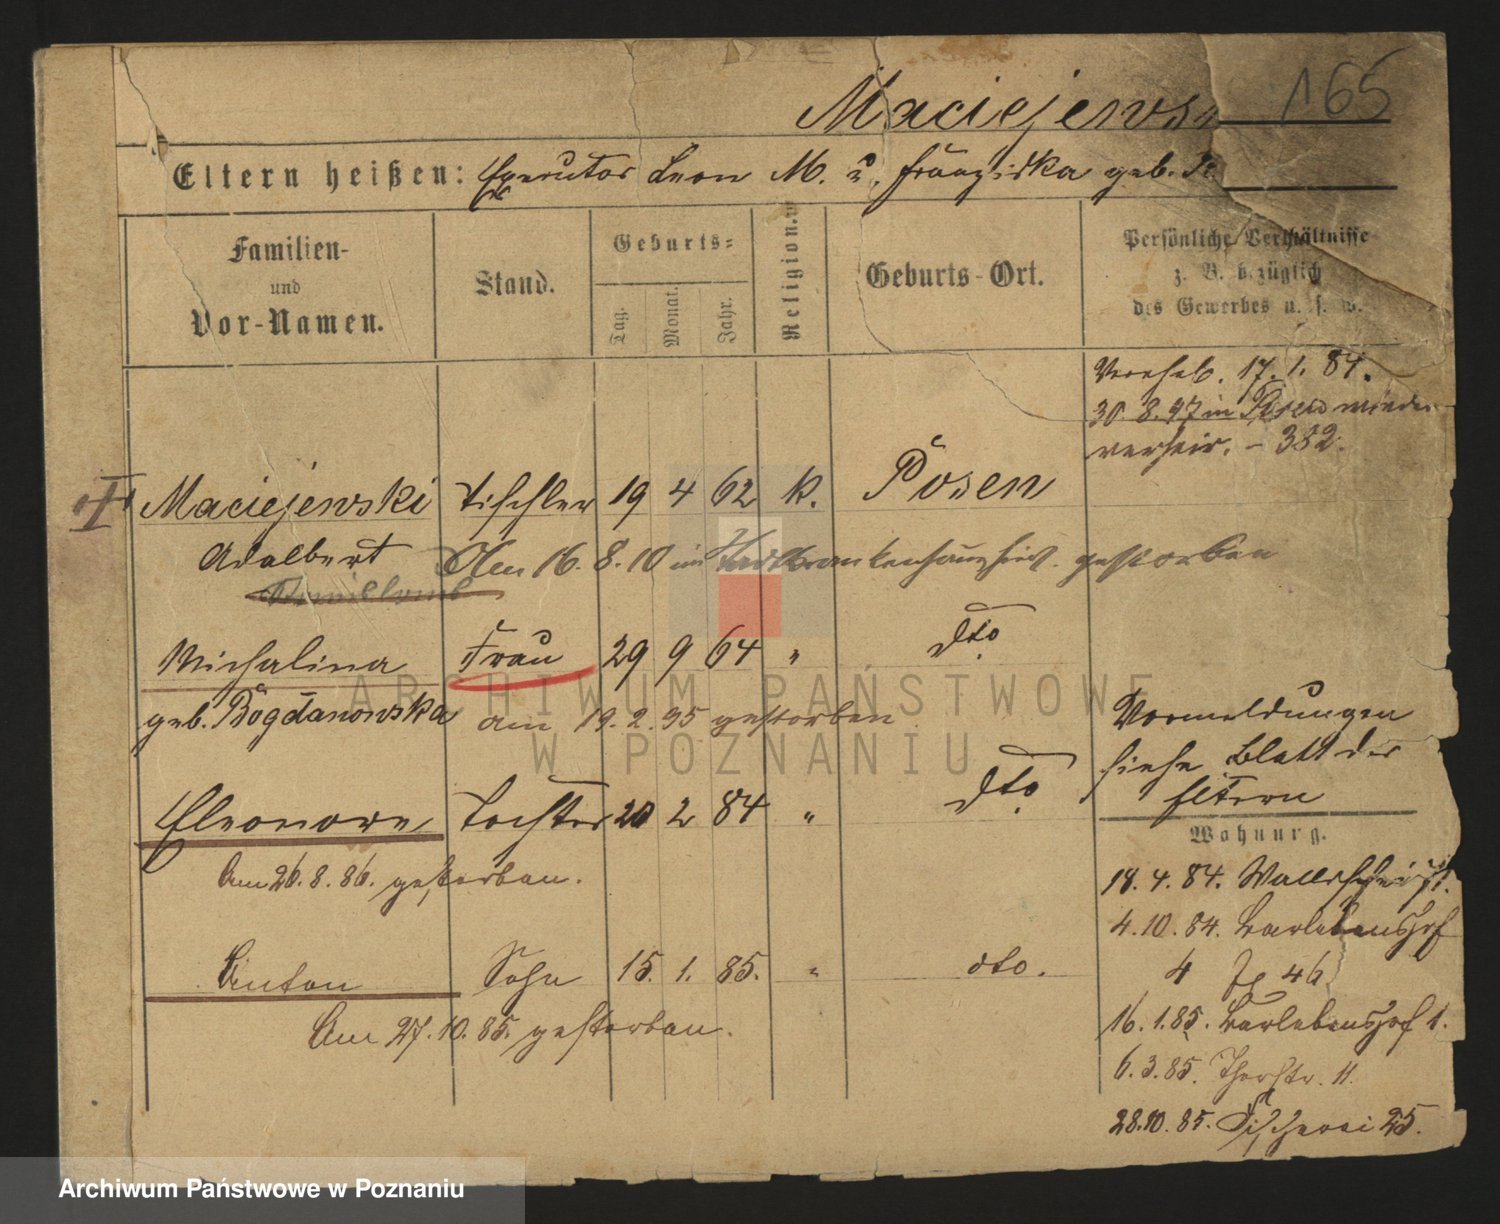 165
Maciejews
Eltern heißen: Executor Leon M. u. Franziska geb.
Familien- und Vor-Namen.
Stand.
Geburts-
Tag. Monat. Jahr.
Religion.
Geburts-Ort.
Persönliche Verhältnisse
z. B. bezüglich
des Gewerbes u. s. w.
Verehel. 17. 1. 84.
30. 8. 97 in Posen wieder
verheir. - 382.
Maciejewski Tischler 19 4 62 k. Posen
Adalbert Am 16. 8. 10 im gestorben
Michalina Frau 29 9 64 " dto
geb. Bogdanowska am 19. 2. 95 gestorben
Vormeldungen
siehe Blatt der
Eltern
Eleonore Tochter 20 2 84 " dto.
Am 26. 8. 86. gestorben.
Wohnung.
18. 4. 84. Wallischei
4. 10. 84. Karlebenshof
4 46
Anton Sohn 15. 1. 85. " dto.
Am 27. 10. 85. gestorben.
16. 1. 85. Karlebenshof 1.
6. 3. 85. Thorstr. 11.
28. 10. 85. Fischerei 25.
ARCHIWUM PAŃSTWOWE
W POZNANIU
Archiwum Państwowe w Poznaniu